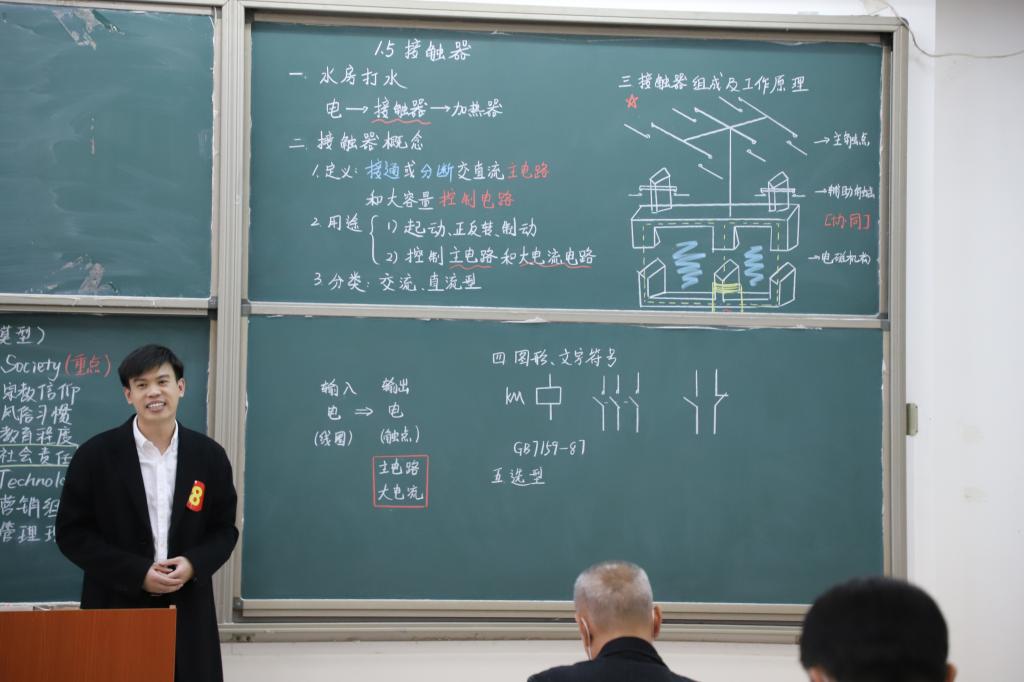 1.5 接触器
一. 水房打水
电→接触器→加热器
二. 接触器概念
1.定义: 接通或分断交直流主电路
和大容量控制电路
2.用途 { 1) 起动、正反转、制动
2) 控制主电路和大电流电路
3.分类: 交流、直流型
三.接触器组成及工作原理
☆
→主触点
→辅助触点
[协同]
→电磁机构
输入 输出
电 ⇒ 电
(线圈) (触点)
主电路
大电流
四 图形、文字符号
KM
GB7159-87
五.选型
模型)
Society(重点)
宗教信仰
风俗习惯
教育程度
社会责任
Technolo
营销组
管理理
8